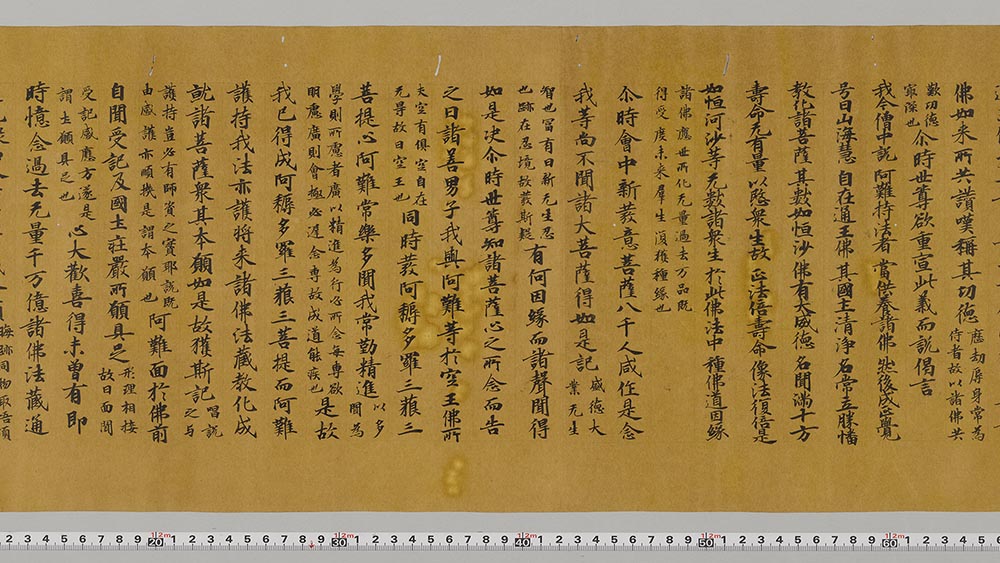 佛如来所共讃嘆稱其功德歴劫屏身常為
侍者故以諸佛共
歎功德
最深也尒時世尊欲重宣此義而說偈言
我今僧中說阿難持法者當供養諸佛然後成正覺
号曰山海慧自在通王佛其國土清浄名常立勝幡
教化諸菩薩其數如恒沙佛有大威德名聞滿十方
壽命无有量以愍衆生故正法倍壽命像法復倍是
如恒河沙等无數諸衆生於此佛法中種佛道因緣
諸佛應世所化无量過去万品既
得受度未来羣生復獲種緣也
尒時會中新發意菩薩八千人咸作是念
我等尚不聞諸大菩薩得如是記威德大
業无生
智也冨有日新无生忍
也跡在忍境故發斯疑有何因緣而諸聲聞得
如是决尒時世尊知諸菩薩心之所念而告
之曰諸善男子我與阿難等於空王佛所
夫空有俱空自在
无㝵故曰空王也同時發阿耨多羅三藐三
菩提心阿難常樂多聞我常勤精進以多
聞為
學則所慮者廣以精進為行必所念每專欲
明慮廣則會極必遲念專故成道能疾也是故
我已得成阿耨多羅三藐三菩提而阿難
護持我法亦護将来諸佛法藏教化成
就諸菩薩衆其本願如是故獲斯記說
之与
護持豈必有師資之實耶該既
由感護亦順機是謂本願也阿難面於佛前
自聞受記及國土莊嚴所願具足形理相接
故曰面聞
受記感應方遂是
謂土願具之也心大歡喜得未曾有即
時憶念過去无量千万億諸佛法藏通